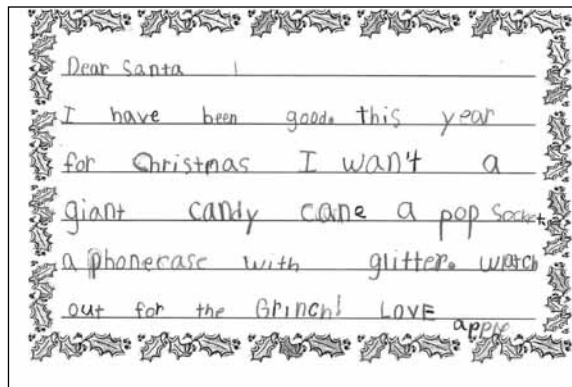 Dear Santa
I have been good. this year
for Christmas I want a
giant candy cane a pop Socket
a phonecase with glitter. watch
out for the Grinch! LOVE